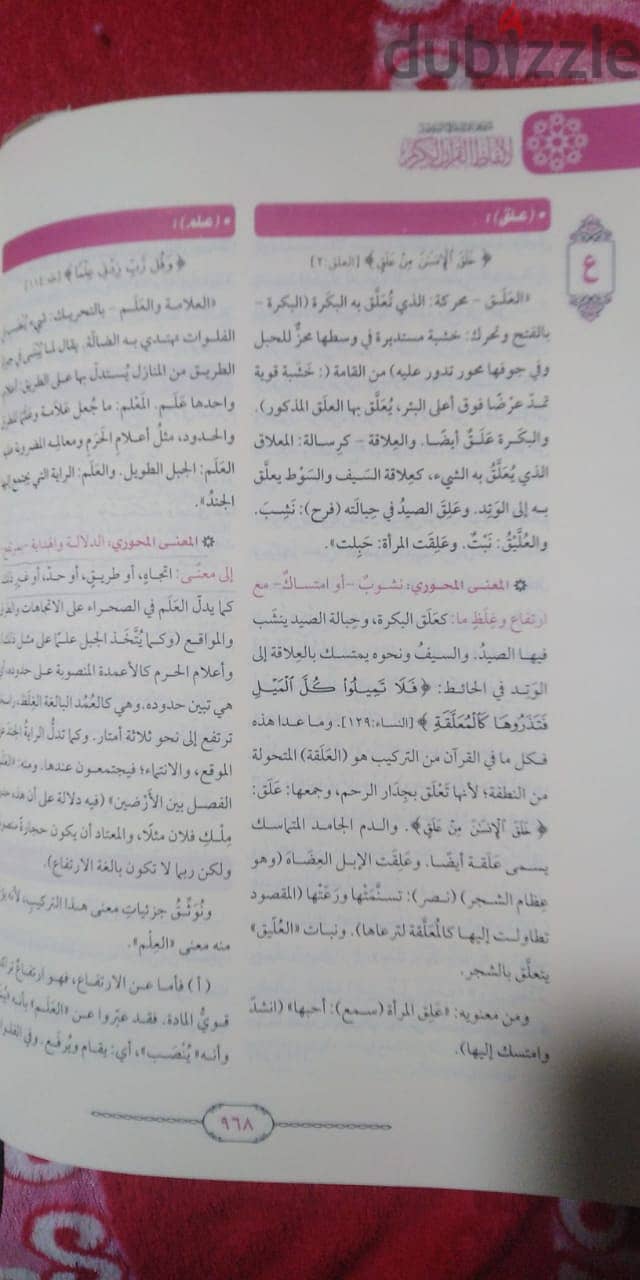 dubizzle
لألفاظ القرآن الكريم
ع
• (علق):
﴿ خَلَقَ ٱلْإِنسَٰنَ مِنْ عَلَقٍ ﴾ [العلق:٢]
«العَلَق - محركة: الذي تُعَلَّق به البكَرة (البكرة -
بالفتح وتحرك: خشبة مستديرة في وسطها محزٌّ للحبل
وفي جوفها محور تدور عليه) من القامة (: خَشَبة قوية
تمدّ عرْضًا فوق أعلى البئر، يُعَلَّق بها العلَق المذكور).
والبكَرة عَلَقٌ أيضًا. والعِلاقة - كرِسالة: المعلاق
الذي يُعَلَّقُ به الشيء، كعِلاقة السَيف والسَوْط يعلَّق
به إلى الوَتِد. وعَلِقَ الصيدُ في حِبالَته (فرح): نَشِبَ.
والعُلَّيْقُ: نَبْتٌ. وعَلِقَت المرأة: حَبِلت».
۞ المعنى المحوري: نشوبٌ - أو امتساكٌ - مع
ارتفاع وغِلَظٍ ما: كعَلَق البكرة، وحِبالة الصيد ينشَب
فيها الصيدُ. والسيفُ ونحوه يمتسك بالعِلاقة إلى
الوَتِد في الحائط: ﴿ فَلَا تَمِيلُوا۟ كُلَّ ٱلْمَيْلِ
فَتَذَرُوهَا كَٱلْمُعَلَّقَةِ ﴾ [النساء:١٢٩]. وما عدا هذه
فكل ما في القرآن من التركيب هو (العَلَقة) المتحولة
من النطفة؛ لأنها تَعْلَق بجِدَار الرحم، وجمعها: عَلَق:
﴿ خَلَقَ ٱلْإِنسَٰنَ مِنْ عَلَقٍ ﴾. والدم الجامد المتماسك
يسمى عَلَقة أيضًا. وعَلِقَت الإبل العِضَاهَ (وهو
عِظام الشجر) (نصر): تسنَّمَتْها ورَعَتْها (المقصود
تطاولت إليها كالمُعَلَّقة لترعاها). ونبات «العُلّيق»
يتعلَّق بالشجر.
ومن معنويه: «عَلِق المرأة (سمع): أحبها» (انشدّ
وامتسك إليها).
• (علم):
﴿ وَقُل رَّبِّ زِدْنِى عِلْمًا ﴾ [طه:١١٤]
«العلامة والعَلَم - بالتحريك: شيء
الفلوات تهتدي به الضالّة. يقال لما يُبْنَى في
الطريق من المنازل يُستدلّ بها على الطريق: أعلام
واحدها عَلَم. المَعْلم: ما جُعل عَلامة وعَلَمًا للطرق
والحدود، مثلُ أعلام الحَرَم ومعالمه المضروبة عليه
العَلَم: الجبل الطويل. والعَلَم: الراية التي يجتمع إليها
الجندُ».
۞ المعنى المحوري: الدلالة والهداية
إلى معنًى: اتجاهٍ، أو طريقٍ، أو حدّ، أو غير ذلك
كما يدلّ العَلَم في الصحراء على الاتجاهات والطرق
والمواقع (وكما يُتَّخَذ الجبل علمًا على مثل ذلك)
وأعلام الحرم كالأعمدة المنصوبة على حدوده
هي تبين حدوده. وهي كالعُمُد البالغة الغِلَظ
ترتفع إلى نحو ثلاثة أمتار. وكما تدلُّ الرايةُ
الموقع، والانتماء؛ فيجتمعون عندها. ومنه:
الفصل بين الأَرْضين» (فيه دلالة على أن هذه
مِلْك فلان مثلًا، والمعتاد أن يكون حجارةً
ولكن ربما لا تكون بالغة الارتفاع).
ونُوَثِّقُ جزئياتِ معنى هذا التركيب،
منه معنى «العِلْم».
(أ) فأما عن الارتفاع، فهو ارتفاعُ
قويُّ المادة. فقد عبّروا عن «العَلَم» بأنه
وأنه «يُنْصَب»، أي: يقام ويُرفع. وفي
٩٦٨